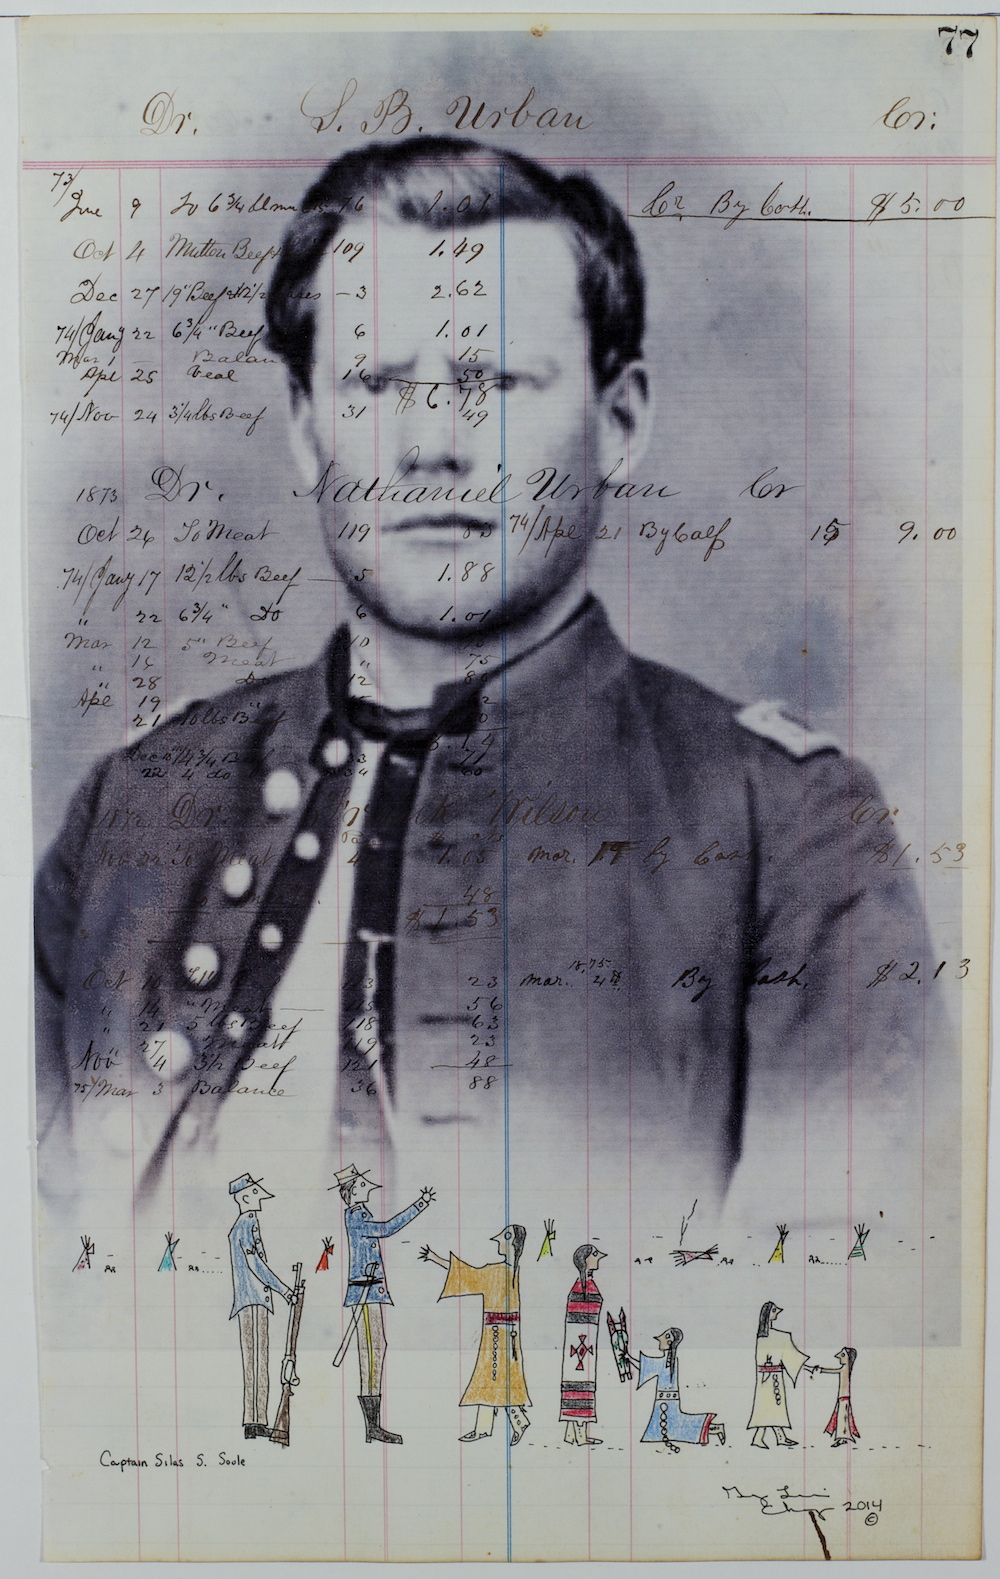 77
Dr. S. B. Urban Cr.
73/
June 9 To 6 3/4 76 1.01 Cr By Cash. $5.00
Oct 4 Mutton Beef 109 1.49
Dec 27 19" Beef - 3 2.62
74/Jany 22 6 3/4 " Beef 6 1.01
Mar 1 - Balan 9 15
Apl 25 Veal 16 50
$6.78
74/Nov 24 3 1/4 lbs Beef 31 49
1873 Dr. Nathaniel Urban Cr
Oct 26 To Meat 119 74/Apl 21 By Calf 15 9.00
74/Jany 17 12 1/2 lbs Beef 5 1.88
" 22 6 3/4 " Do 6 1.01
Mar 12 5" Beef 10
" 16 Meat " 75
" 28 12
Apl 19
21 10 lbs Beef
4 do 34 60
Dr. Wilson Cr.
To Meat 4 1.05 Mar. By Cash. $1.53
48
$1.53
Oct 10 23 Mar. 1875 4th By Cash. $2.13
" 14 " Meat 56
" 21 5 lbs Beef 118 63
" 27 119 23
Nov 4 3 1/2 Beef 121 48
75/Mar 3 Balance 36 88
Captain Silas S. Soule
2014
©